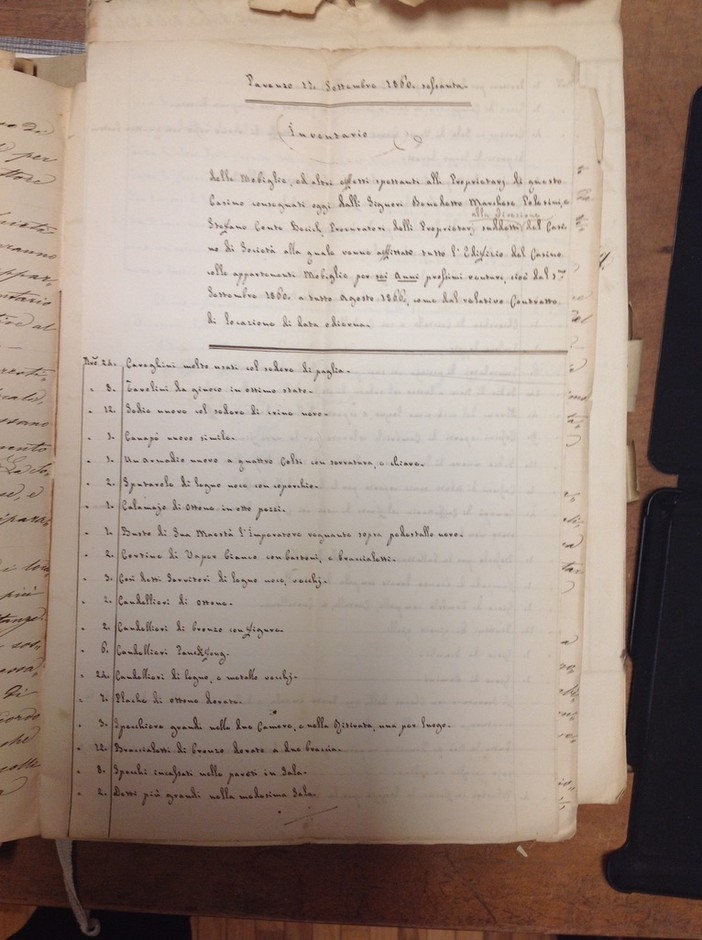 Parenzo 11 Settembre 1860. sessanta.
Inventario
delle Mobiglie, ed altri effetti spettanti alli Proprietarj di questo
Casino consegnati oggi dalli Signori Benedetto Marchese Polesini, e
alla Direzione
Stefano Conte Becich Procuratori delli Proprietarj suddetti del Casi-
no di Società alla quale venne affittato tutto l'Edifizio del Casino
colle appartenenti Mobiglie per sei Anni prossimi venturi, cioè dal 1.mo
Settembre 1860. a tutto Agosto 1866, come dal relativo Contratto
di Locazione di data odierna.
Nro 24. Careghini molto usati col sedere di paglia.
" 8. Tavolini da giuoco in ottimo stato.
" 12. Sedie nuove col sedere di crine nero.
" 1. Canapè nuovo simile.
" 1. Un armadio nuovo a quattro Colti con serratura, e chiave.
" 2. Spazzole di legno nose con coperchio.
" 1. Calamajo di ottone in otto pezzi.
" 1. Busto di Sua Maestà l'Imperatore regnante sopra pedestallo nero.
" 2. Cortine di Vaper bianco con bastoni, e braccialetti.
" 3. Così detti Servitori di legno nose, vecchj.
" 2. Candellieri di ottone.
" 2. Candellieri di bronzo con figure.
" 6. Candellieri Panckfong.
" 24. Candellieri di legno, e metallo vecchj.
" 7. Plache di ottone dorate.
" 3. Specchiere grandi nelle due Camere, e nella Ritirata, una per luogo.
" 12. Braccialetti di bronzo dorato a due braccia.
" 8. Specchi incassati nelle pareti in Sala.
" 2. Detti più grandi nella medesima Sala.